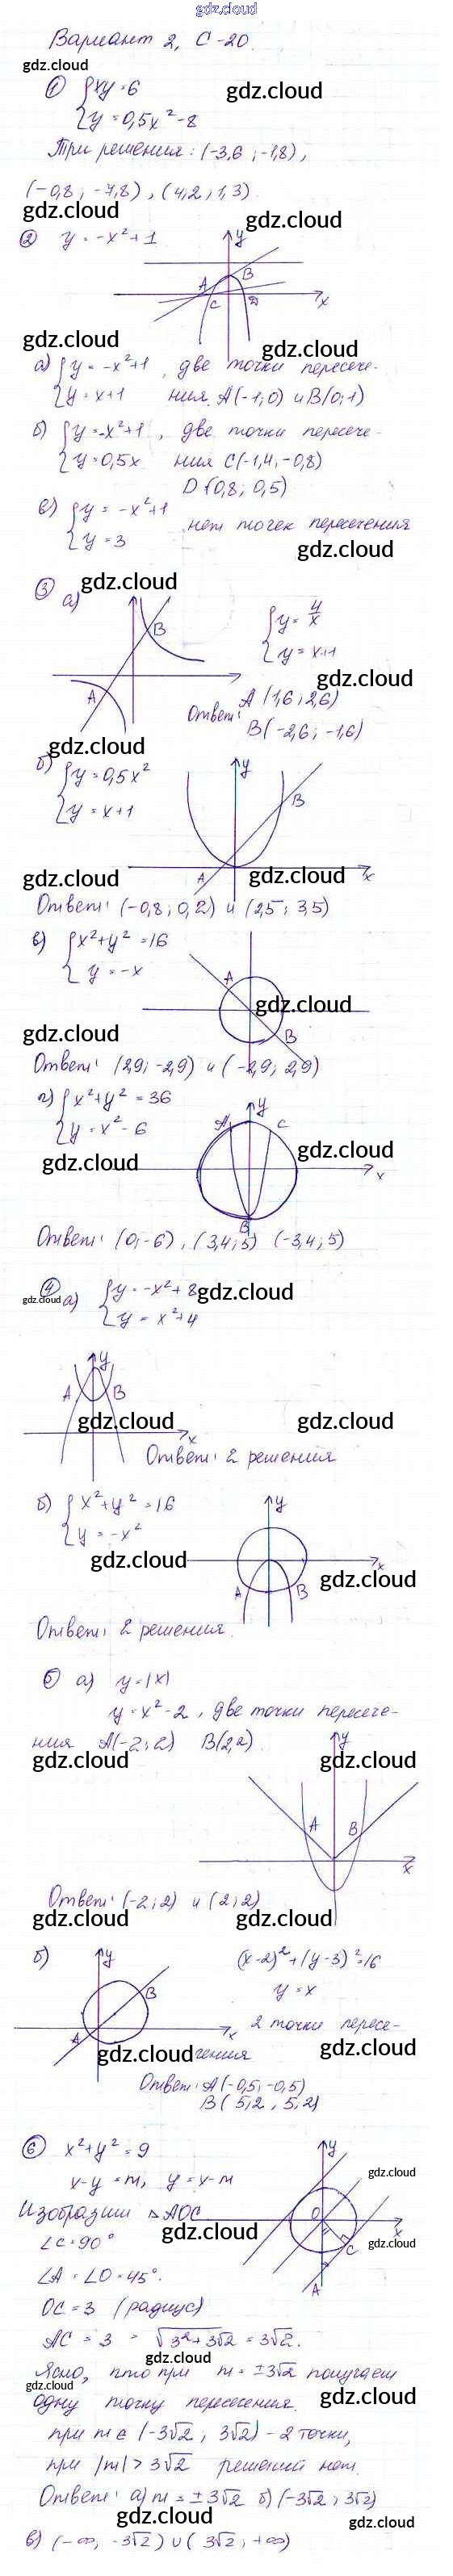 gdz.cloud
Вариант 2, С-20.
gdz.cloud
① {xy=6
gdz.cloud
{y=0,5x²-8
Три решения: (-3,6; -1,8),
(-0,8; -7,8), (4,2; 1,3).
gdz.cloud
gdz.cloud
② y=-x²+1
y
A B
C D x
gdz.cloud
gdz.cloud
а) {y=-x²+1, две точки пересече-
{y=x+1 ния A(-1;0) и B(0;1)
б) {y=-x²+1, две точки пересече-
{y=0,5x ния C(-1,4; -0,8)
D(0,8; 0,5)
в) {y=-x²+1
{y=3 нет точек пересечения
gdz.cloud
③ gdz.cloud
а)
B
A
{y=4/x
{y=x+1
gdz.cloud
Ответ: A(1,6; 2,6)
B(-2,6; -1,6)
gdz.cloud
б) {y=0,5x²
{y=x+1
y
B
A
x
gdz.cloud gdz.cloud
Ответ: (-0,8; 0,2) и (2,5; 3,5)
в) {x²+y²=16
{y=-x
A
gdz.cloud
B
gdz.cloud
Ответ: (2,9; -2,9) и (-2,9; 2,9)
г) {x²+y²=36
{y=x²-6
y
A C
gdz.cloud
gdz.cloud
x
B
Ответ: (0;-6), (3,4; 5) (-3,4; 5)
④ gdz.cloud
а) {y=-x²+8 gdz.cloud
{y=x²+4
y
A B
gdz.cloud gdz.cloud
x
Ответ: 2 решения
б) {x²+y²=16
{y=-x²
y
gdz.cloud
x
gdz.cloud
A B
Ответ: 2 решения.
5 а) y=|x|
y=x²-2, две точки пересече-
ния A(-2;2) B(2,2).
gdz.cloud gdz.cloud
y
A B
x
Ответ: (-2;2) и (2;2)
gdz.cloud gdz.cloud
б)
y
B
A
x
(x-2)²+(y-3)²=16
y=x
2 точки пересе-
gdz.cloud чения
gdz.cloud
Ответ: A(-0,5; -0,5)
B(5,2, 5,2)
⑥ x²+y²=9
y
x-y=m, y=x-m
gdz.cloud
Изобразим △AOC
O
x
gdz.cloud
∠C=90°
gdz.cloud
C
∠A=∠O=45°.
A
OC=3 (радиус)
AC = 3 = √3²+3√2 = 3√2.
gdz.cloud
Ясно, что при m=±3√2 получаем
gdz.cloud
одну точку пересечения.
gdz.cloud
при m∈(-3√2, 3√2) - 2 точки,
при |m|>3√2 решений нет.
Ответ: а) m=±3√2 б) (-3√2; 3√2)
gdz.cloud
в) (-∞, -3√2)∪(3√2; +∞)
gdz.cloud